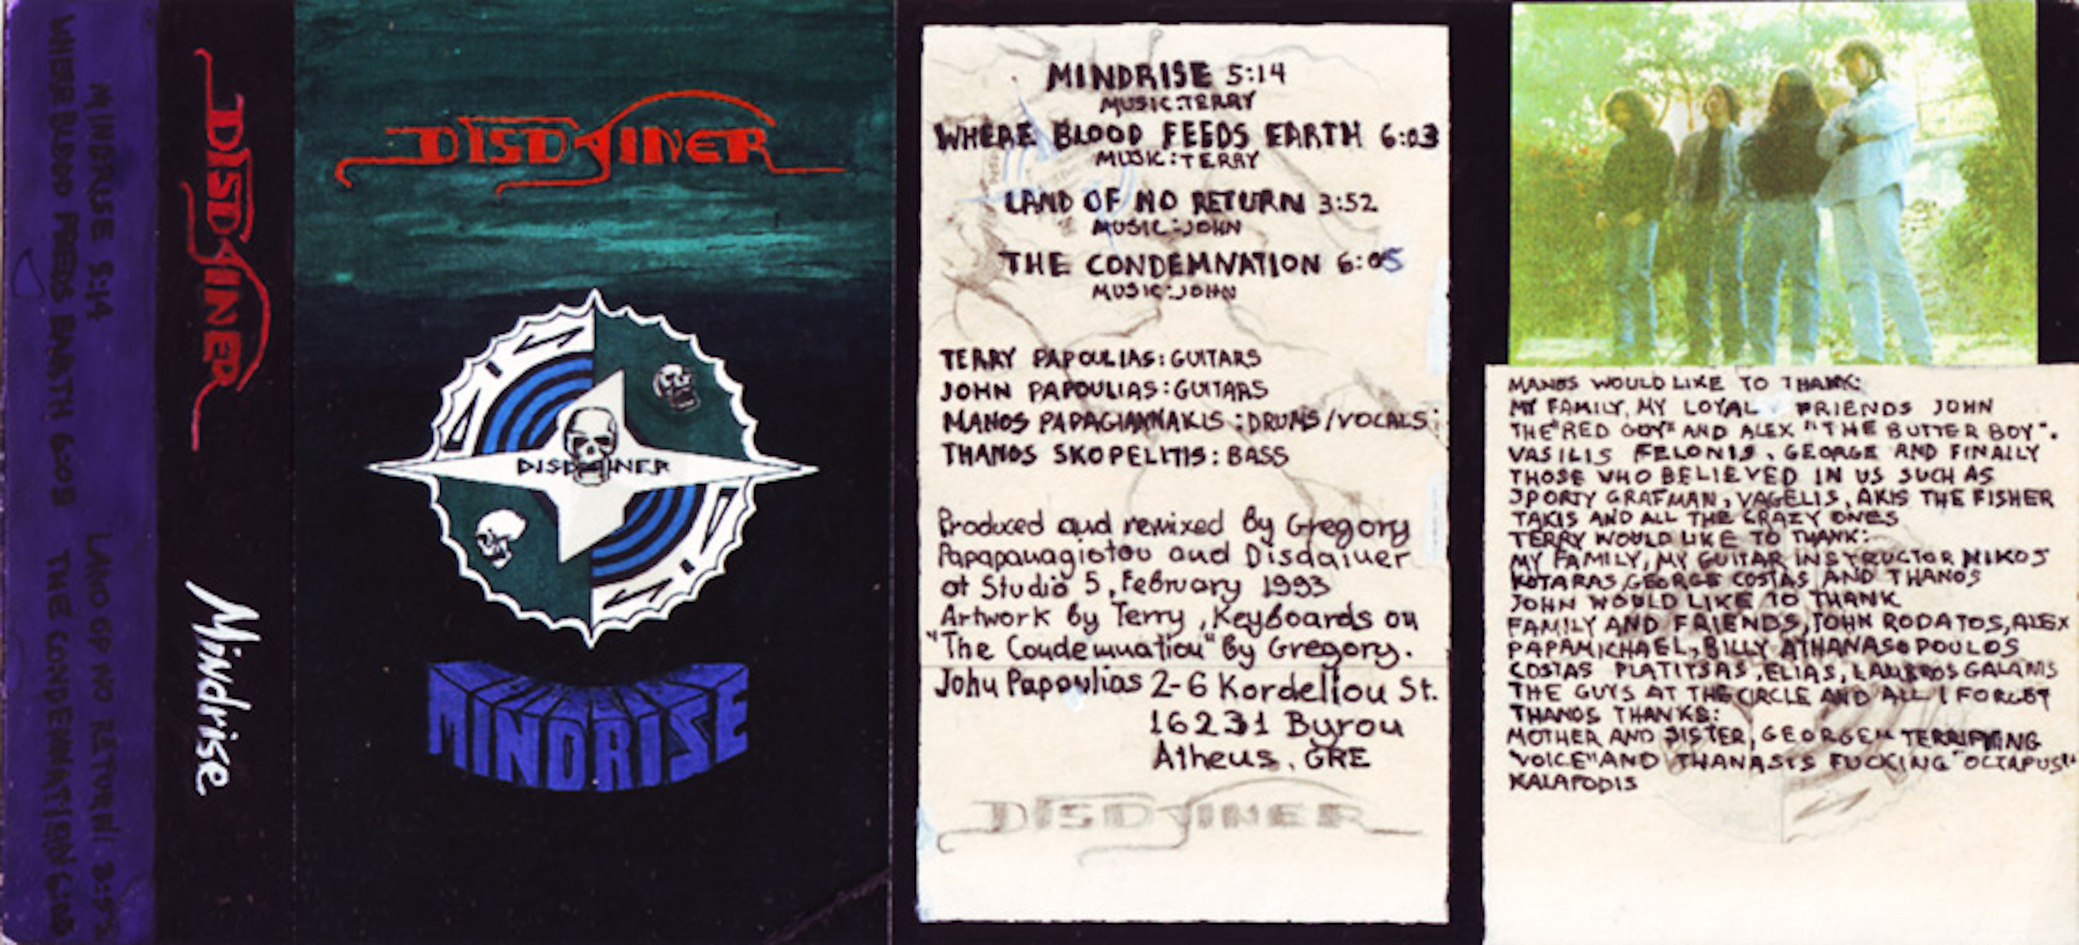 MINDRISE 5:14 LAND OF NO RETURN 3:52
WHERE BLOOD FEEDS EARTH 6:03 THE CONDEMNATION 6:05
DISDAINER
Mindrise
DISDAINER
DISDAINER
MINDRISE
MINDRISE 5:14
MUSIC:TERRY
WHERE BLOOD FEEDS EARTH 6:03
MUSIC:TERRY
LAND OF NO RETURN 3:52
MUSIC:JOHN
THE CONDEMNATION 6:05
MUSIC:JOHN
TERRY PAPOULIAS: GUITARS
JOHN PAPOULIAS: GUITARS
MANOS PAPAGIANNAKIS: DRUMS/VOCALS
THANOS SKOPELITIS: BASS
Produced and remixed By Gregory
Papapanagiotou and Disdainer
at Studio 5, February 1993
Artwork by Terry, Keyboards on
"The Condemnation" By Gregory.
John Papoulias 2-6 Kordeliou St.
16231 Byrou
Athens, GRE
DISDAINER
MANOS WOULD LIKE TO THANK:
MY FAMILY, MY LOYAL FRIENDS JOHN
THE "RED GUY" AND ALEX "THE BUTTER BOY".
VASILIS FELONIS, GEORGE AND FINALLY
THOSE WHO BELIEVED IN US SUCH AS
SPORTY GRAFMAN, VAGELIS, AKIS THE FISHER
TAKIS AND ALL THE CRAZY ONES
TERRY WOULD LIKE TO THANK:
MY FAMILY, MY GUITAR INSTRUCTOR NIKOS
KOTARAS, GEORGE COSTAS AND THANOS
JOHN WOULD LIKE TO THANK
FAMILY AND FRIENDS, JOHN RODATOS, ALEX
PAPAMICHAEL, BILLY ATHANASOPOULOS
COSTAS PLATITSAS, ELIAS, LAMBROS GALANIS
THE GUYS AT THE CIRCLE AND ALL I FORGOT
THANOS THANKS:
MOTHER AND SISTER, GEORGE "TERRIFYING
VOICE" AND THANASIS FUCKING "OCTAPUS"
KALAFODIS